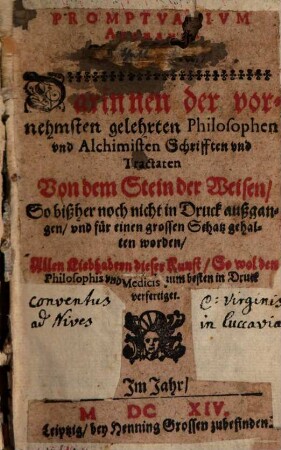 PROMPTVARIVM
Darinnen der vor-
nehmsten gelehrten Philosophen
vnd Alchimisten Schrifften vnd
Tractaten
Von dem Stein der Weisen/
So bißher noch nicht in Druck außgan-
gen/ vnd für einen grossen Schatz gehal-
ten worden/
Allen Liebhabern dieser Kunst/ So wol den
Philosophis vnd Medicis zum besten in Druck
verfertiget.
Conventus
ad Nives
C: Virginis
in Luccavia
Im Jahr/
M DC XIV.
Leipzig/ bey Henning Grossen zubefinden.